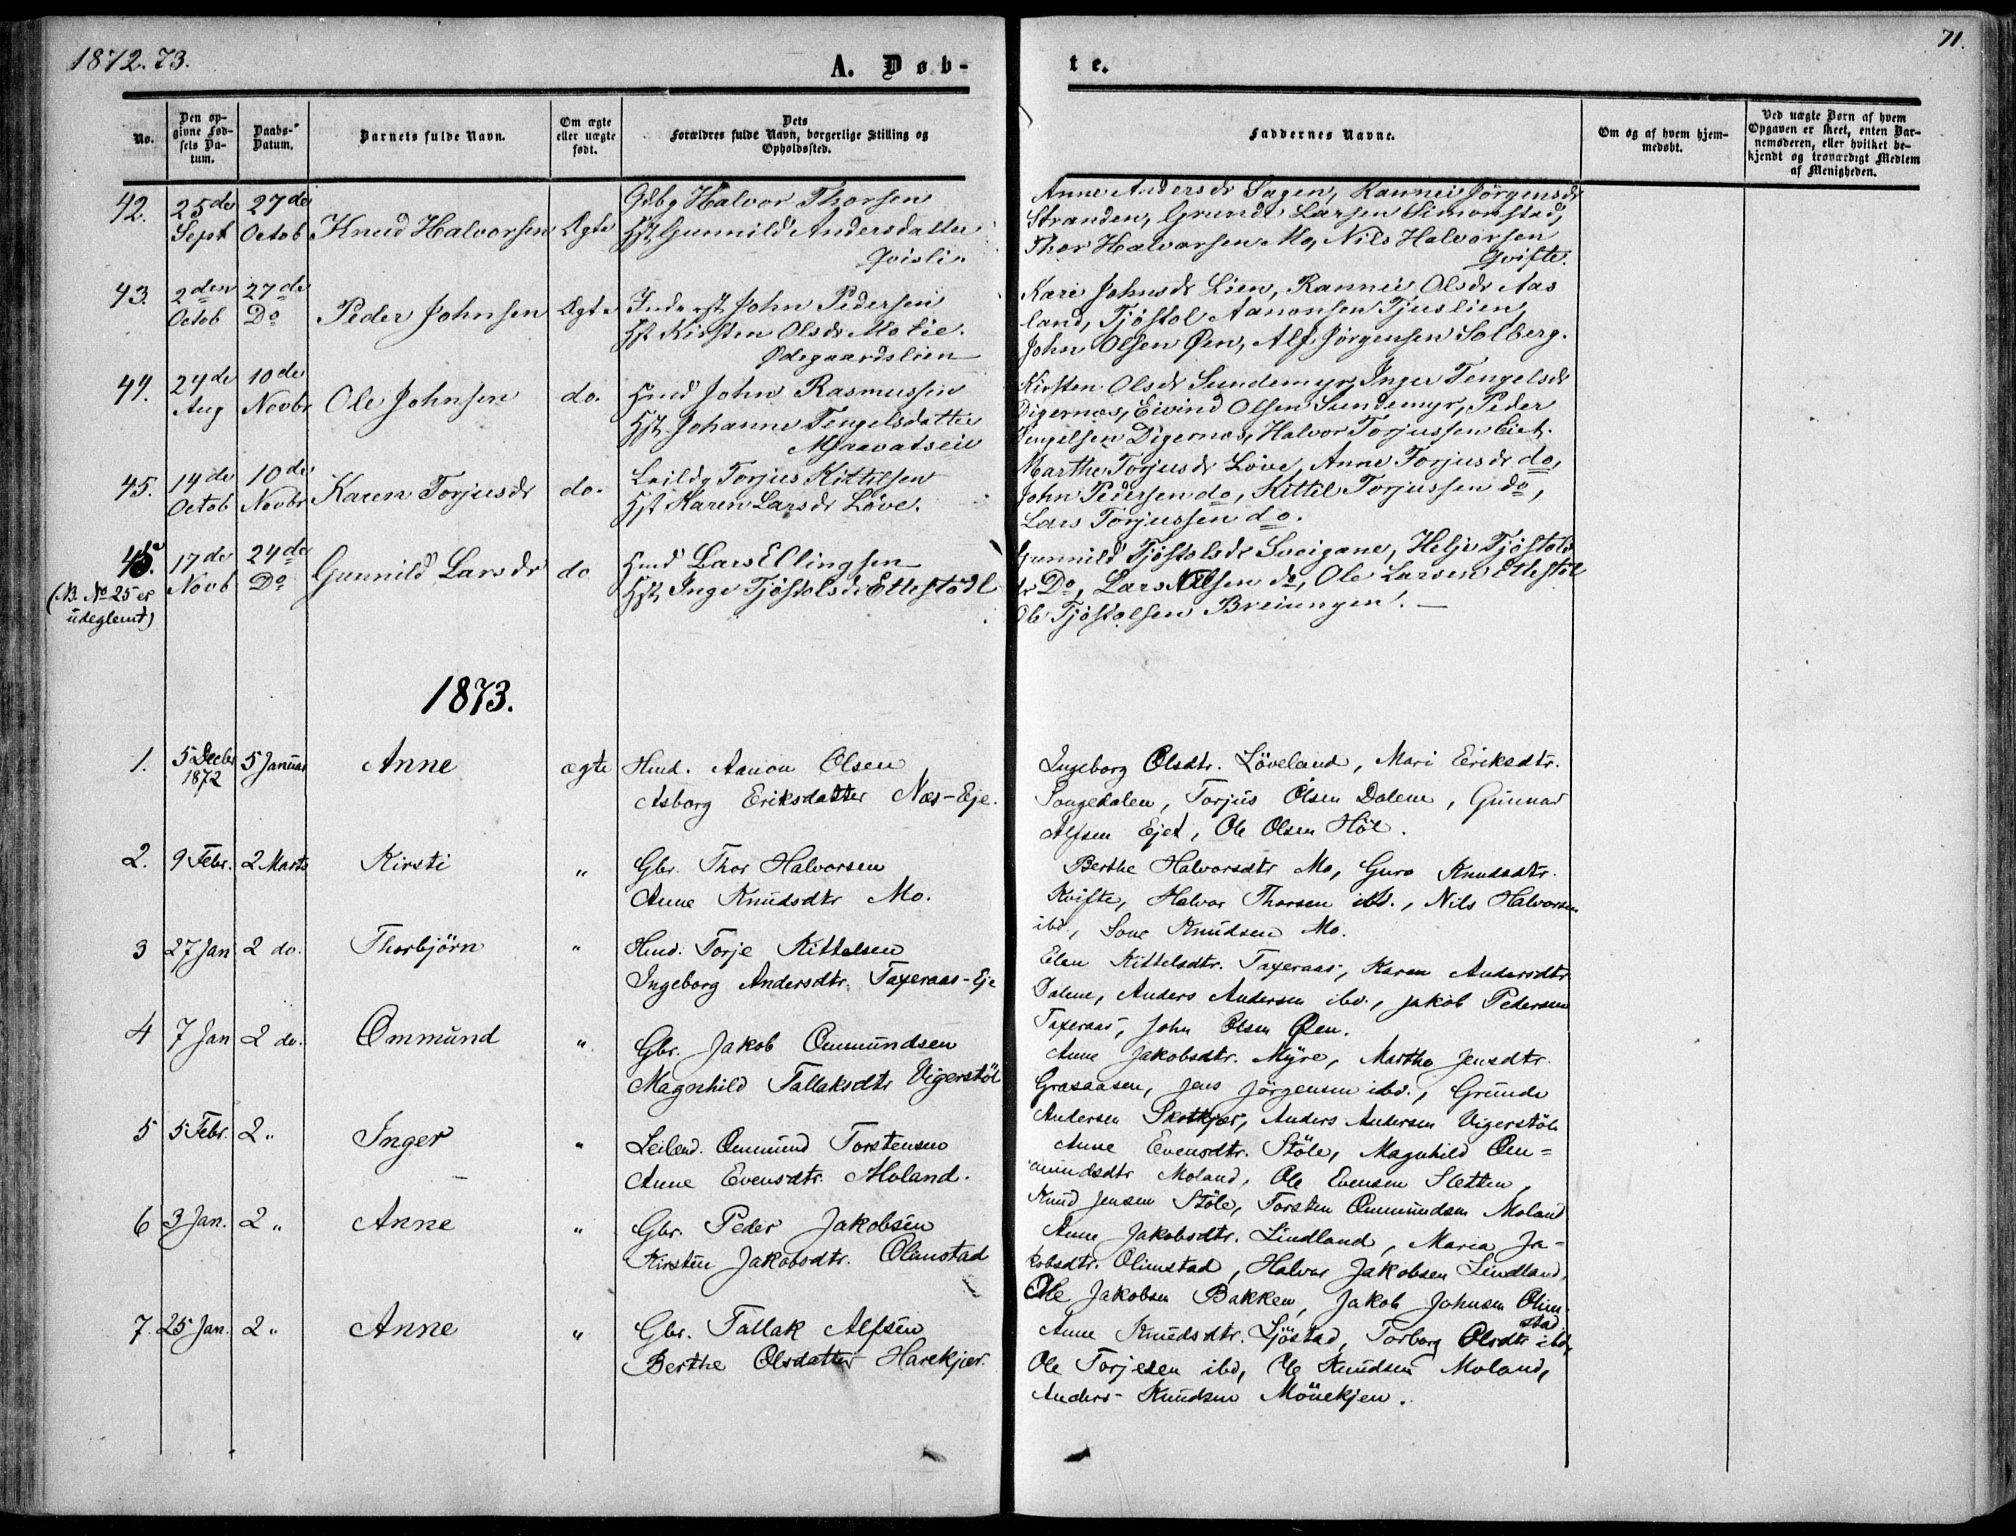 1872.73.
A. Døb-
te.
71.
No.
Den opgivne Fødsels Datum.
Daabs-Datum.
Barnets fulde Navn.
Om ægte eller uægte født.
Dets Forældres fulde Navn, borgerlige Stilling og Opholdssted.
Faddernes Navne.
Om og af hvem hjemmedøbt.
Ved uægte Børn af hvem Opgaven er skeet, enten Barnemoderen, eller hvilket bekjendt og troværdigt Medlem af Menigheden.
42. 25de Sept 27de Octob Knud Halvorsen Ægte
Gdbg Halvor Thorsen
Hst Gunnild Andersdatter
Qvisli
Anne Andersdr Sagen, Rannei Jörgensdr
Stranden, Grunde Larsen Simonstad,
Thor Halvorsen Mo, Nils Halvorsen
Qvifte.
43. 2den Octob 27de Do Peder Johnsen Ægte
Inderst John Pedersen
Hst Kirsten Olsdr Mo Eie.
Ødegaardslien
Kari Johnsdr Lien, Rannei Olsdr Aas
land, Tjöstol Aanonsen Tjuslien,
John Olsen Øen, Alf Jörgensen Solberg.
44. 24de Aug 10de Novbr Ole Johnsen do.
Hmd John Rasmussen
Hst Johanne Tengelsdatter
Mjaavatseie
Kirsten Olsdr Sundemyr, Inger Tengelsdr
Digernæs, Eivind Olsen Sundemyr, Peder
Tengelsen Digernæs, Halvor Torjussen Eiet.
45. 14de Octob 10de Novbr Karen Torjusdr do.
Leildg Torjus Kittilsen
Hst Karen Larsdr Löve.
Marthe Torjusdr Löve, Anne Torjusdr do,
John Pedersen do, Kittil Torjussen do,
Lars Torjussen do.
45. 17de Novb 24de Do Gunnild Larsdr do
(NB. No 25 er
udeglemt)
Hmd Lars Ellingsen
Hst Inge Tjöstolsdr Ettestödl
Gunnild Tjöstolsdr Sveigane, Helje Tjöstols
dr Do, Lars Nilsen do, Ole Larsen Ettestöl
Ole Tjöstolsen Breiungen.
1873.
1. 5 Decbr 1872 5 Januar Anne ægte
Hmd. Aanon Olsen
Asborg Eriksdatter Næs-Eje.
Ingeborg Olsdtr. Löveland, Mari Eriksdtr.
Songedalen, Torjus Olsen Dalene, Gunnar
Alfsen Ejet, Ole Olsen Höl.
2. 9 Febr. 2 Marts Kirsti "
Gbr. Thor Halvorsen
Anne Knudsdtr Mo.
Berthe Halvorsdtr Mo, Guro Knudsdtr.
Kvifte, Halvor Thorsen ibd., Nils Halvorsen
ibd, Sone Knudsen Mo.
3 27 Jan 2 do. Thorbjörn "
Hmd. Torje Kittelsen
Ingeborg Andersdtr. Taxeraas-Eje
Elen Kittelsdtr. Taxeraas, Karen Andersdtr
Dalene, Anders Andersen ibd., Jakob Pedersen
Taxeraas, John Olsen Øen.
4 7 Jan 2 do. Ommund "
Gbr. Jakob Ommundsen
Magnhild Tallaksdtr Vigerstöl
Anne Jakobsdtr. Myre, Marthe Jensdtr.
Grasaasen, Jens Jörgensen ibd., Grunde
Andersen Skotkjær, Anders Andersen Vigerstöl.
5 5 Febr. 2 " Inger "
Leilænd. Ommund Torstensen
Anne Evensdtr. Moland.
Anne Evensdtr. Støle, Magnhild Om=
mundsdtr Moland, Ole Evensen Sletten,
Knud Jensen Støle, Torsten Ommundsen Moland
6 3 Jan. 2 " Anne "
Gbr. Peder Jakobsen
Kirsten Jakobsdtr. Olimstad
Anne Jakobsdtr. Lindland, Maria Ja-
kobsdtr. Olimstad, Halvor Jakobsen Lindland,
Ole Jakobsen Bakken, Jakob Johnsen Olim-
stad
7. 25 Jan. 2 " Anne "
Gbr. Tallak Alfsen
Berthe Olsdatter Harekjær.
Anne Knudsdtr. Ljöstad, Torborg Olsdtr ibd,
Ole Torjesen ibd, Ole Knudsen Moland,
Anders Knudsen Mönekjen.